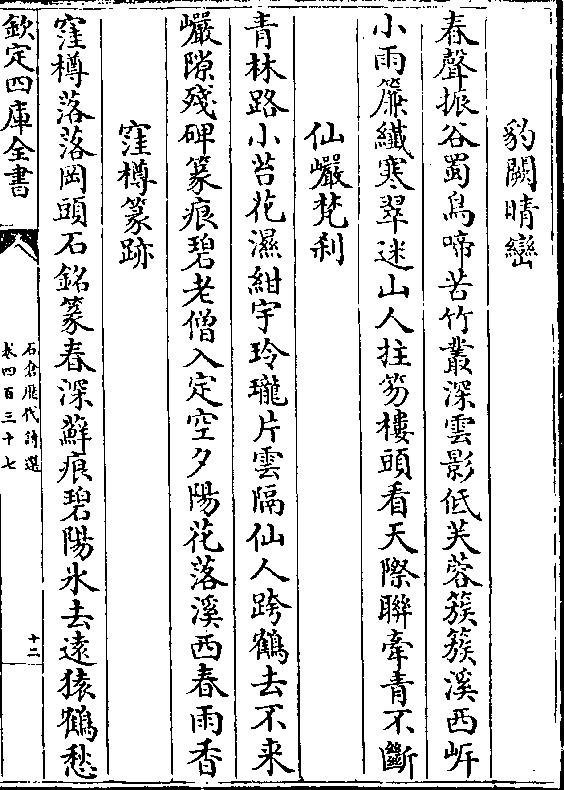 豹闕晴巒
春聲振谷蜀鳥啼苦竹叢深雲影低芙蓉簇簇溪西㟁
小雨簾纖寒翠迷山人拄笏樓頭看天際聯牽青不斷
仙巖梵刹
青林路小苔花濕紺宇玲瓏片雲隔仙人跨鶴去不来
巖隙殘碑篆痕碧老僧入定空夕陽花落溪西春雨香
窪樽篆跡
窪樽落落岡頭石銘篆春深蘚痕碧陽氷去遠猿鶴愁
欽定四庫全書
石倉歴代詩選
卷四百三十七
十二